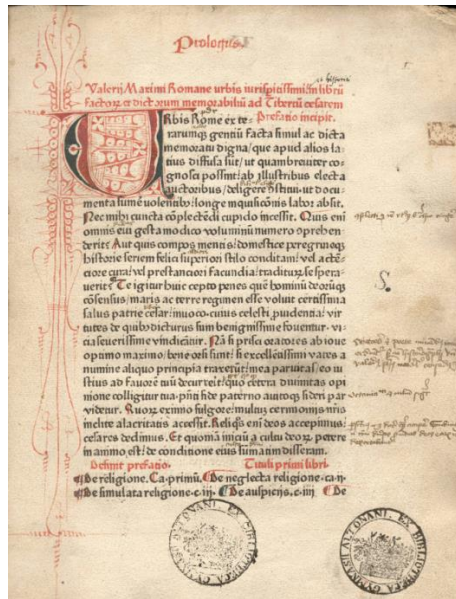 Prologus
Valerij Maximi Romane urbis iurisperitissimi in librū
factoꝝ et dictorum memorabiliū ad Tiberiū cesarem
Prefatio incipit.
Urbis Rome exte-
rarumqꝫ gentiū facta simul ac dicta
memoratu digna/ que apud alios la-
tius diffusa sūt/ ut quam breuiter co-
gnosci possint/ ab illustribus electa
auctoribus/ deligere ꝯstitui: ut docu-
menta sumē uolentibꝰ/ longe inquisicōnis labor absit.
Nec mihi cuncta cōplectēdi cupido incessit. Quis eni
omnis eui gesta modico voluminū numero ꝯprehen-
derit? Aut quis compos mentis: domestice peregrineqꝫ
historie seriem felici superiori stilo conditam: vel attē-
tiore cura: vel prestanciori facundia/ tradituꝝ se spera-
uerit? Te igitur huic cepto penes quē hominū deorūqꝫ
cōsensus/ maris ac terre regimen esse voluit certissima
salus patrie cesar/ inuoco: cuius celesti ꝓuidentia/ vir-
tutes de quibꝰ dicturus sum benignissime fouentur: vi-
cia seuerissime vindicātur. Nā si prisci oratores ab ioue
optimo maximo/ bene orsi sunt: si excellētissimi vates a
numine aliquo principia traxerūt: mea paruitas/ eo iu-
stius ad fauorē tuū decurrerit/ quo cetera diuinitas opi
nione colligitur tua pñti fide paterno auitoqꝫ sideri par
videtur. Quoꝝ eximio fulgore/ multū cerimonijs nris
inclite alacritatis accessit. Reliqꝰs eni deos accepimus
cesares dedimus. Et quoniā iniciū a cultu deoꝝ petere
in animo est/ de conditione eius sūmatim disseram.
Definit prefatio. Tituli primi libri.
De religione. Ca. primū. De neglecta religione. ca. ij.
De simulata religione. c. iij. De auspicijs. c. iiij De
S.
EX BIBLIOTHECA GYMNASII ALTONANI.
EX BIBLIOTHECA GYMNASII ALTONANI.